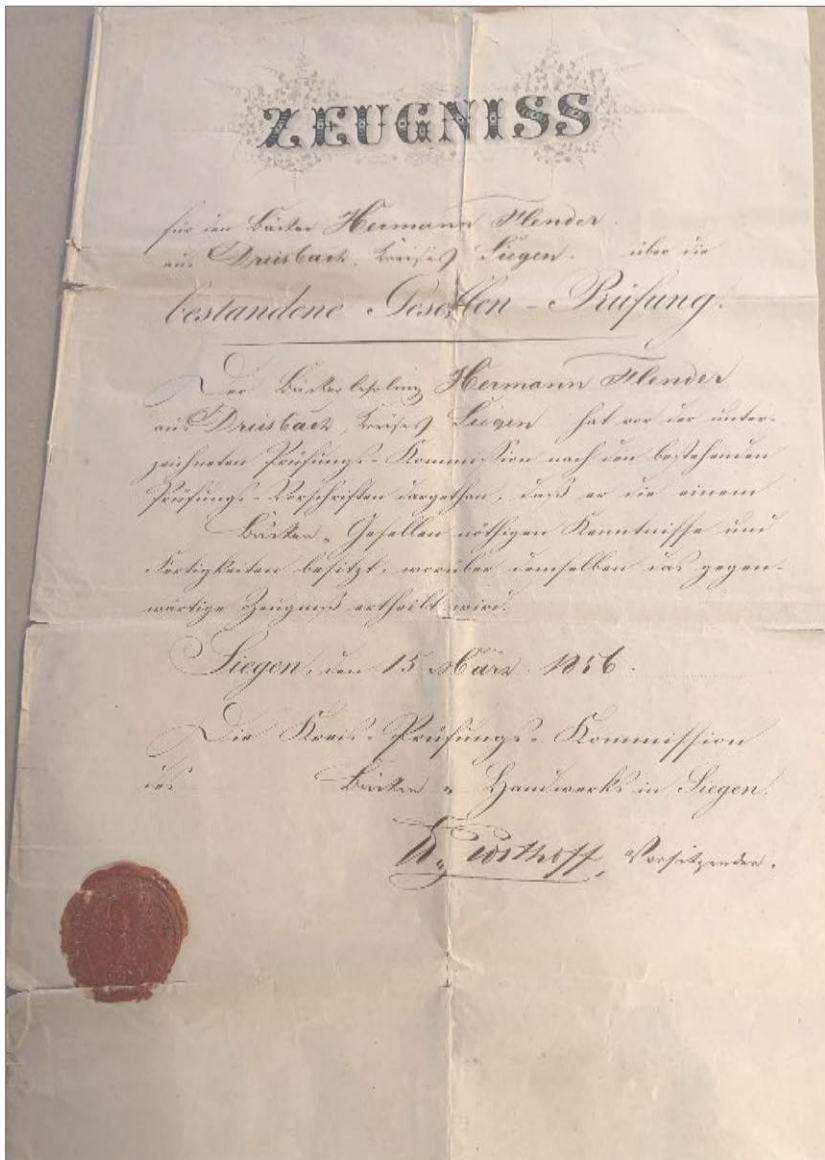 ZEUGNISS
für den Bäcker Hermann Flender
aus Dreisbach, Kreises Siegen. über die
bestandene Gesellen-Prüfung.
Der Bäckerlehrling Hermann Flender
aus Dreisbach, Kreises Siegen hat vor der unter-
zeichneten Prüfungs-Kommission nach den bestehenden
Prüfungs-Vorschriften dargethan, daß er die einem
Bäcker-Gesellen nöthigen Kenntnisse und
Fertigkeiten besitzt, worüber demselben das gegen-
wärtige Zeugniß ertheilt wird.
Siegen, den 15 März 1856.
Die Kreis-Prüfungs-Kommission
des Bäcker-Handwerks in Siegen.
Vorsitzender.